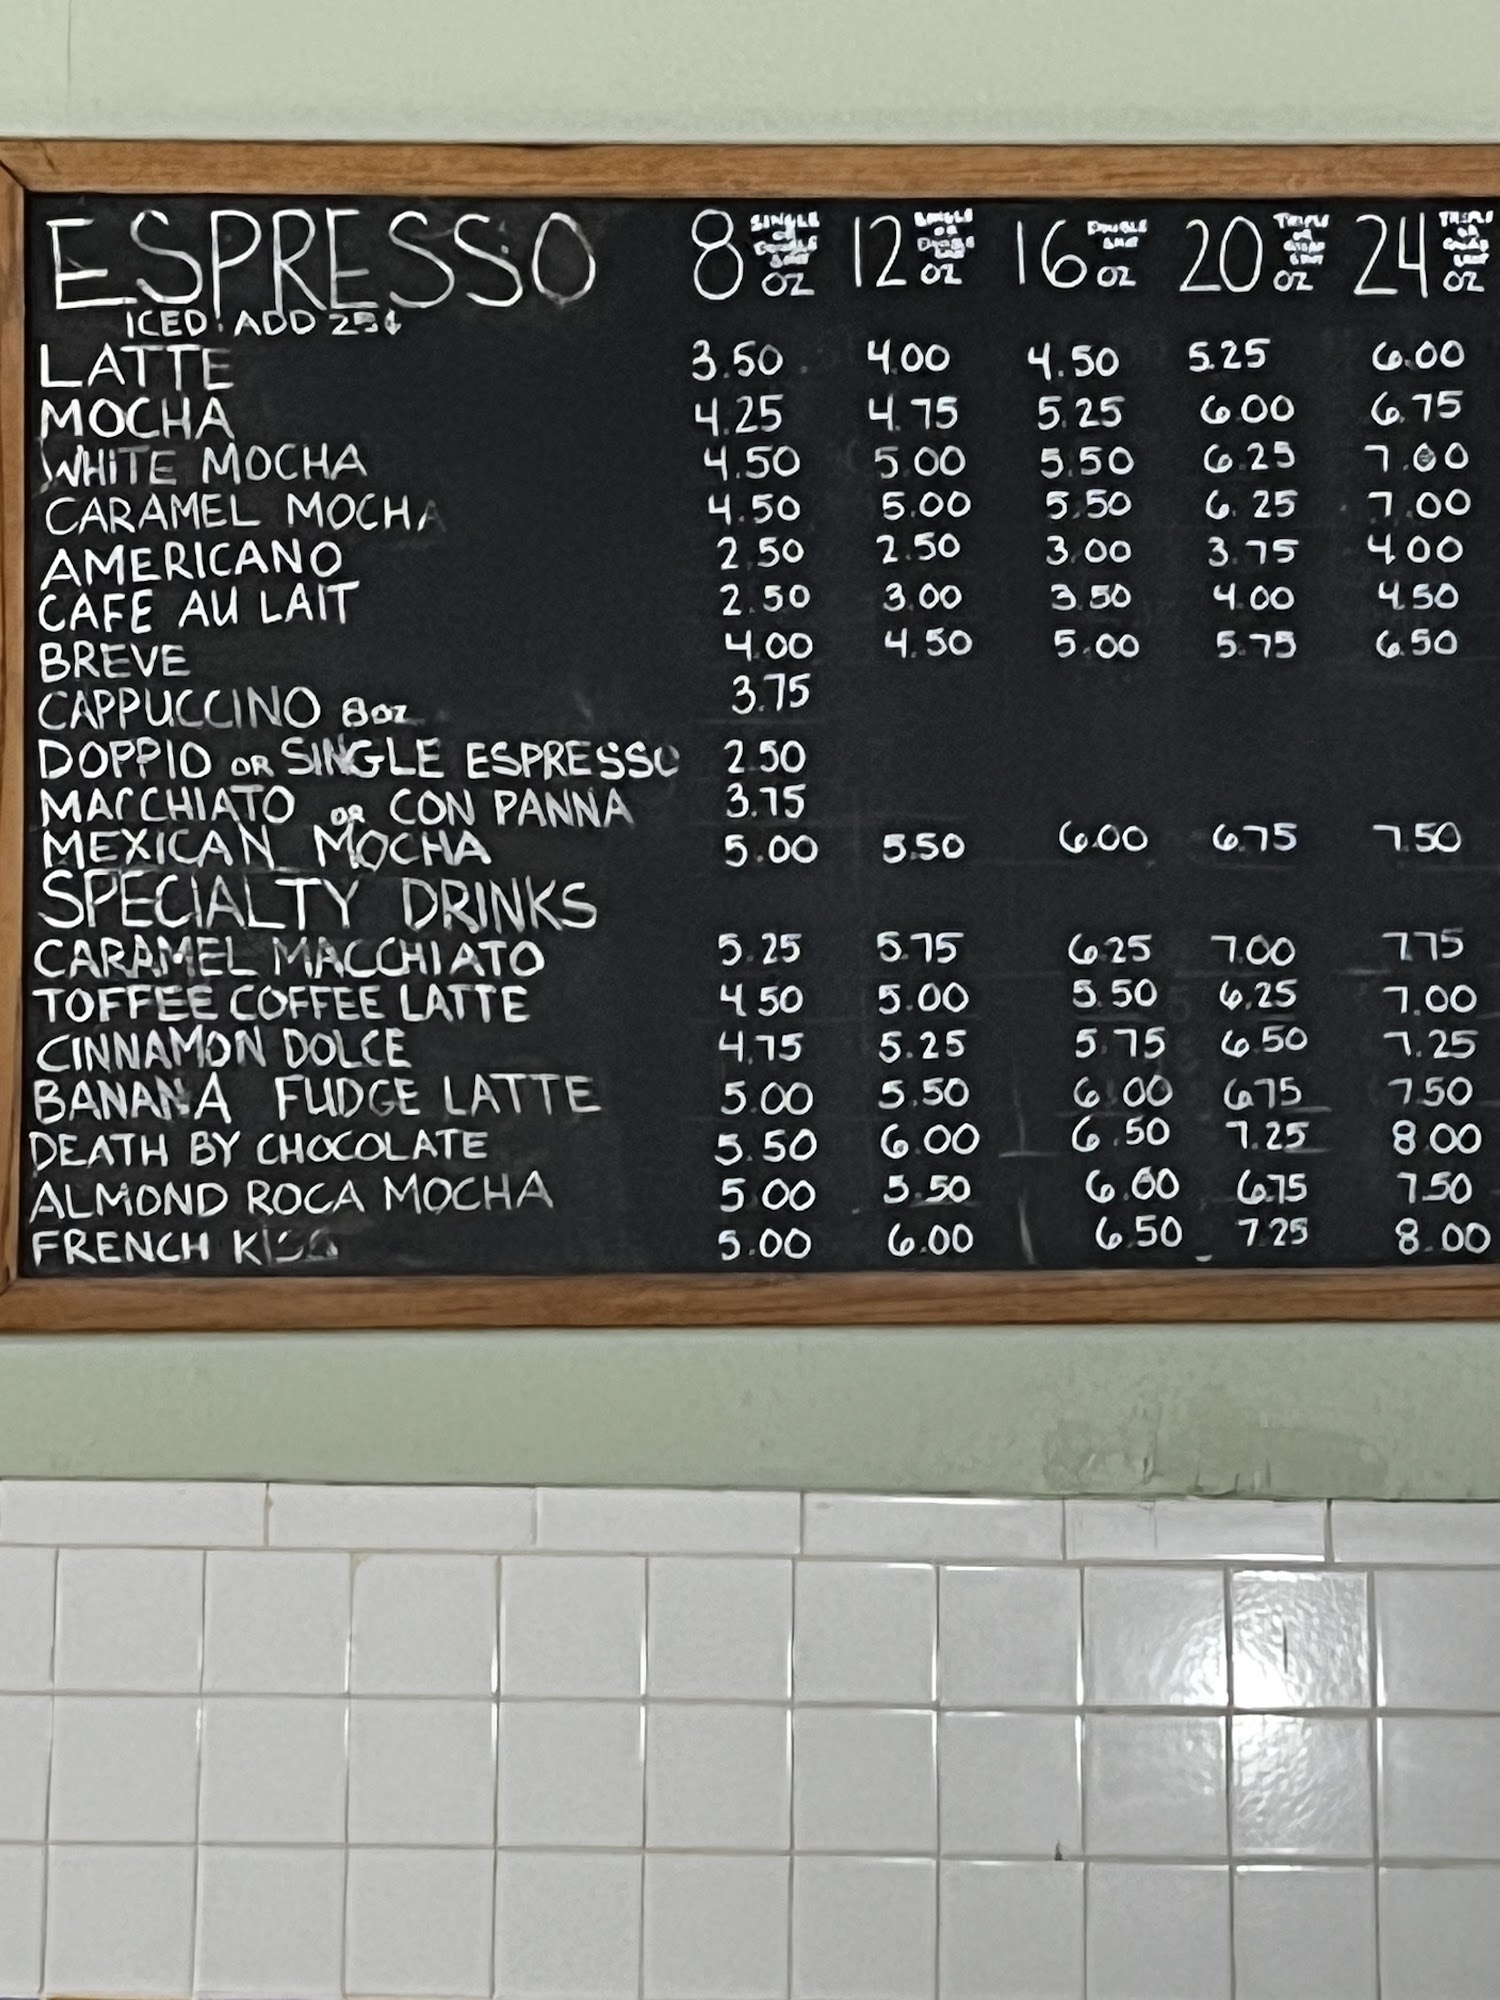 ESPRESSO 8 SINGLE OR DOUBLE SHOT OZ 12 SINGLE OR DOUBLE SHOT OZ 16 DOUBLE SHOT OZ 20 TRIPLE OR QUAD SHOT OZ 24 TRIPLE OR QUAD SHOT OZ
ICED: ADD 25¢
LATTE 3.50 4.00 4.50 5.25 6.00
MOCHA 4.25 4.75 5.25 6.00 6.75
WHITE MOCHA 4.50 5.00 5.50 6.25 7.00
CARAMEL MOCHA 4.50 5.00 5.50 6.25 7.00
AMERICANO 2.50 2.50 3.00 3.75 4.00
CAFE AU LAIT 2.50 3.00 3.50 4.00 4.50
BREVE 4.00 4.50 5.00 5.75 6.50
CAPPUCCINO 8oz 3.75
DOPPIO OR SINGLE ESPRESSO 2.50
MACCHIATO OR CON PANNA 3.75
MEXICAN MOCHA 5.00 5.50 6.00 6.75 7.50
SPECIALTY DRINKS
CARAMEL MACCHIATO 5.25 5.75 6.25 7.00 7.75
TOFFEE COFFEE LATTE 4.50 5.00 5.50 6.25 7.00
CINNAMON DOLCE 4.75 5.25 5.75 6.50 7.25
BANANA FUDGE LATTE 5.00 5.50 6.00 6.75 7.50
DEATH BY CHOCOLATE 5.50 6.00 6.50 7.25 8.00
ALMOND ROCA MOCHA 5.00 5.50 6.00 6.75 7.50
FRENCH KISS 5.00 6.00 6.50 7.25 8.00